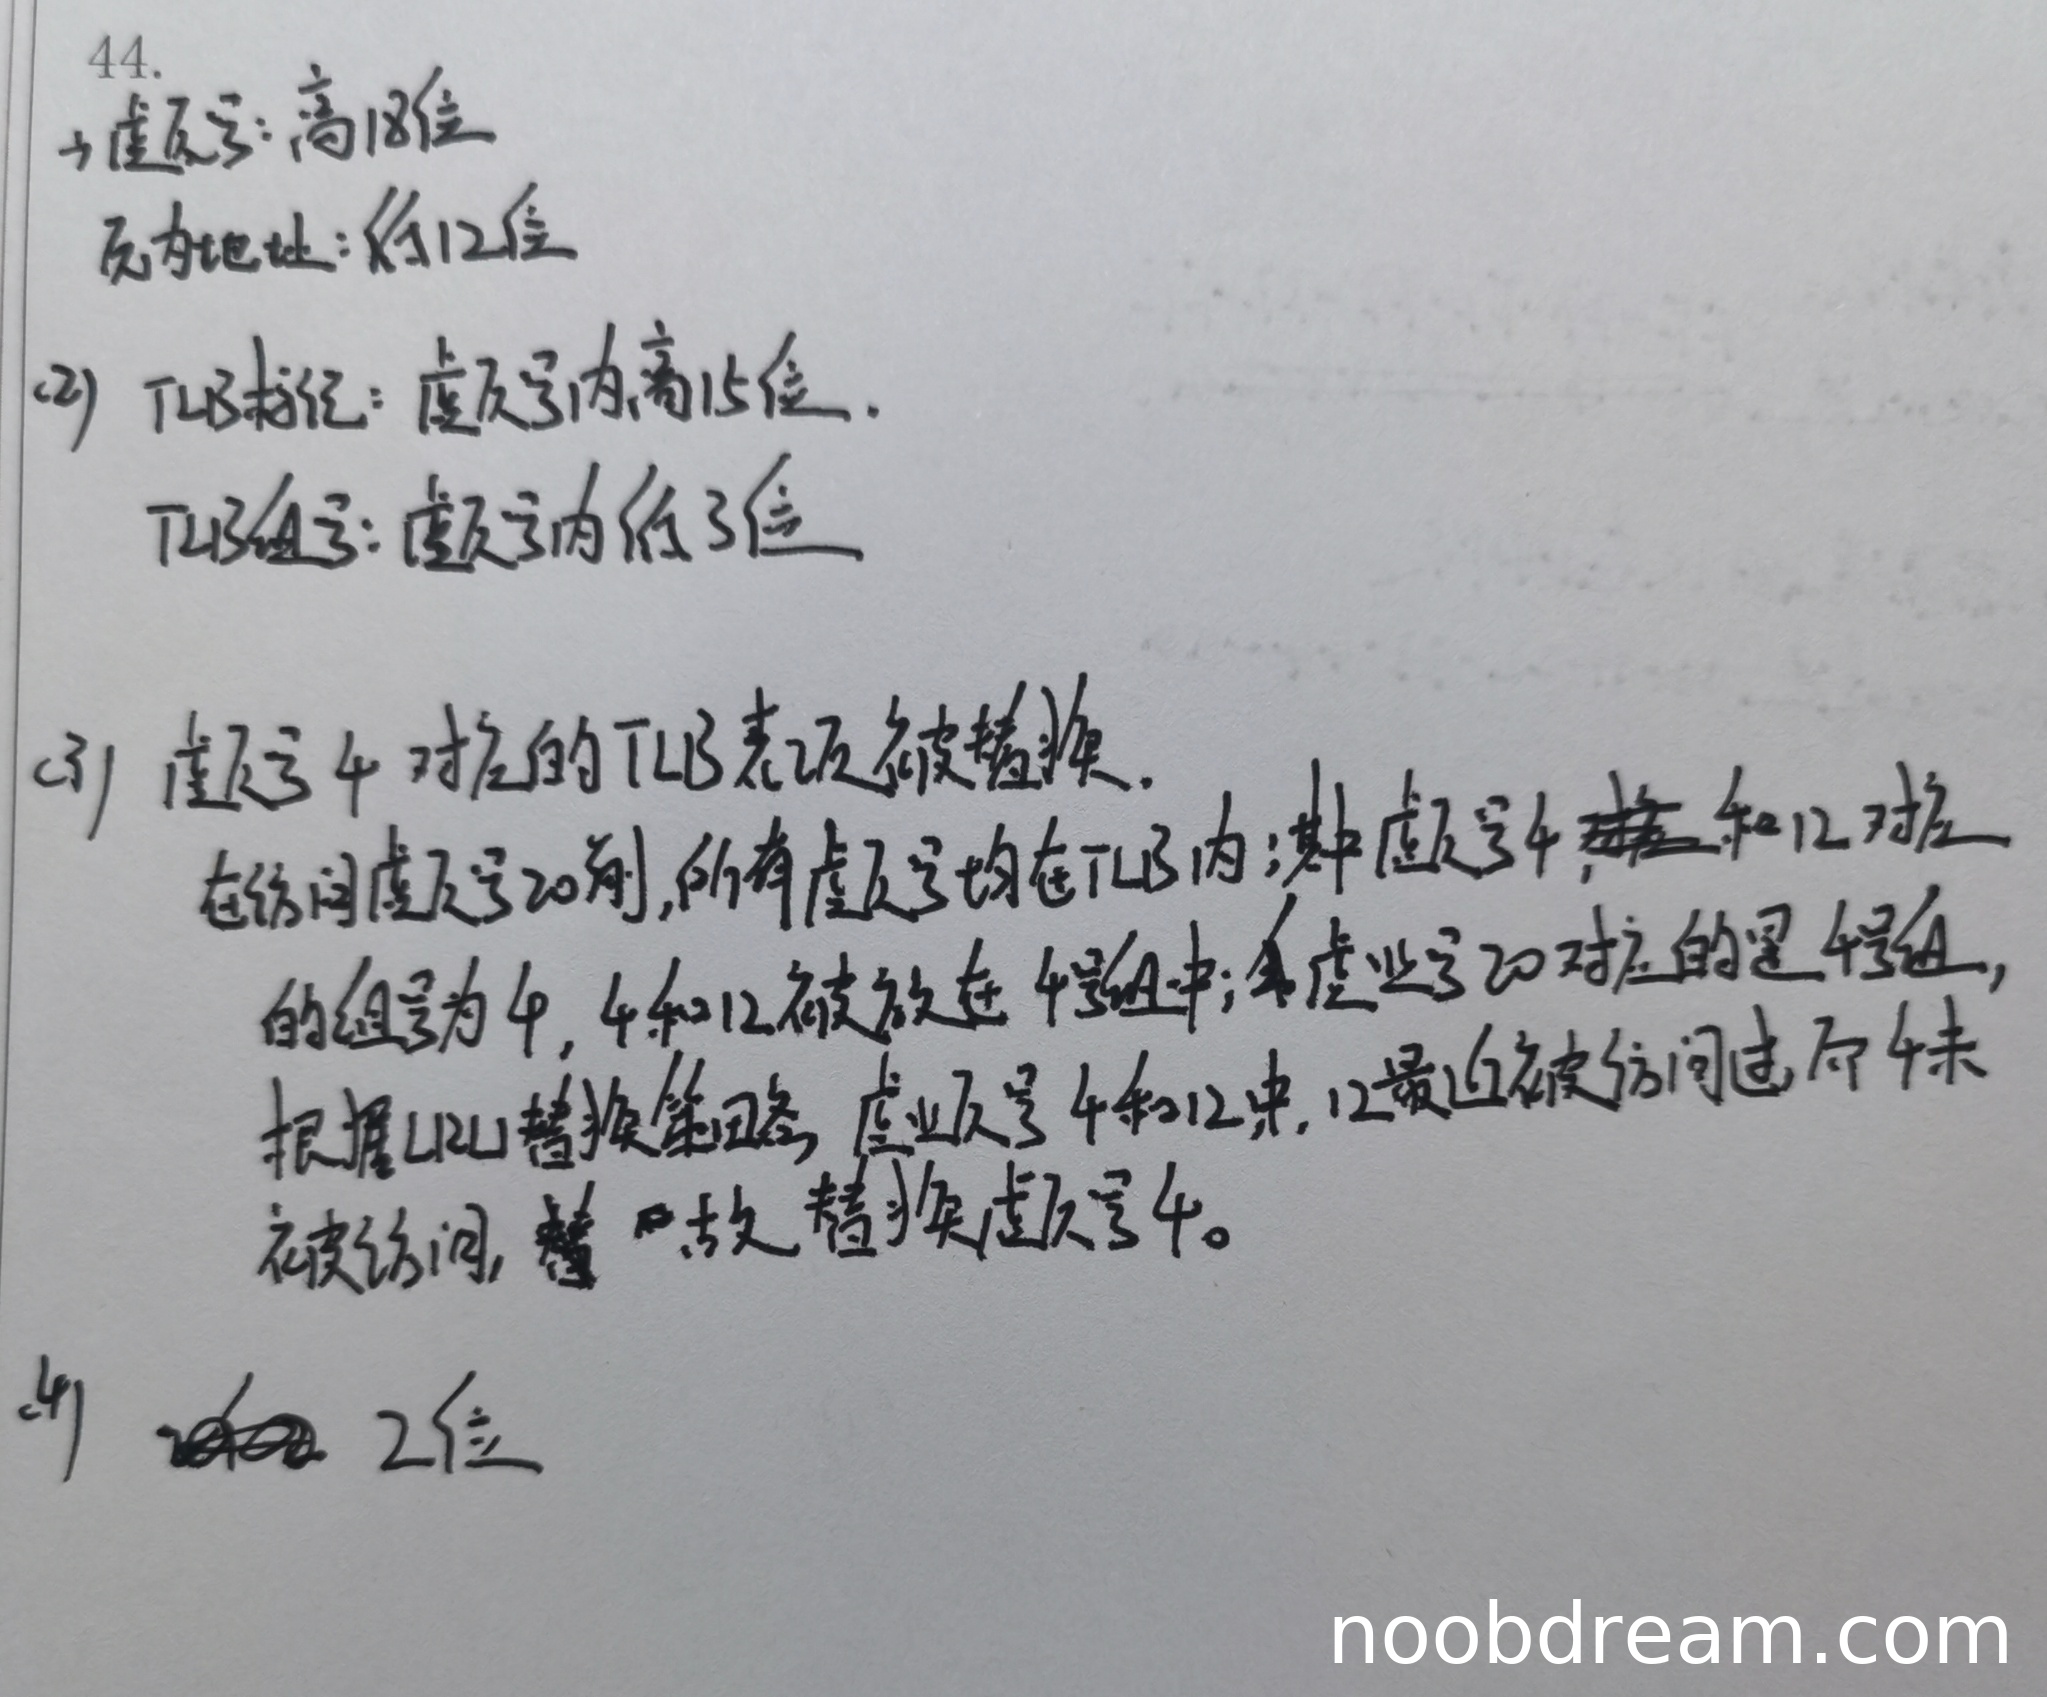 44.
虚页号：高18位
页内地址：低12位
(2) TLB标记：虚页号内高15位.
TLB组号：虚页号内低3位
(3) 虚页号4对应的TLB表项被替换.
在访问虚页号20前,所有虚页号均在TLB内;其中虚页号4,和12对应
的组号为4, 4和12被放在4号组中; 虚业号20对应的是4号组,
根据LRU替换策略, 虚业页号4和12中, 12最近被访问过而4未
被访问, 故替换虚页号4。
(4) 2位
noobdream.com